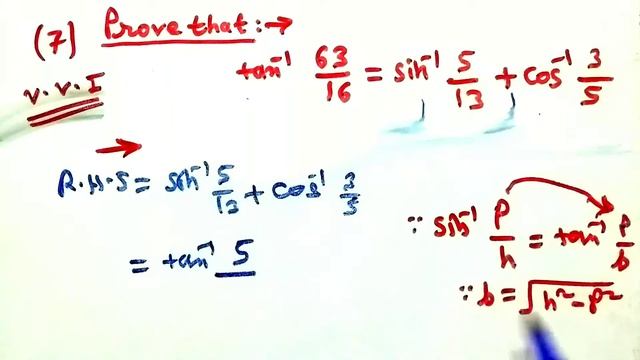 (7) Prove that :→
v.v.I
tan⁻¹ 63/16 = sin⁻¹ 5/13 + cos⁻¹ 3/5
R.H.S = sin⁻¹ 5/13 + cos⁻¹ 3/5
= tan⁻¹ 5
∵ sin⁻¹ P/h = tan⁻¹ P/b
∵ b = √h²-P²